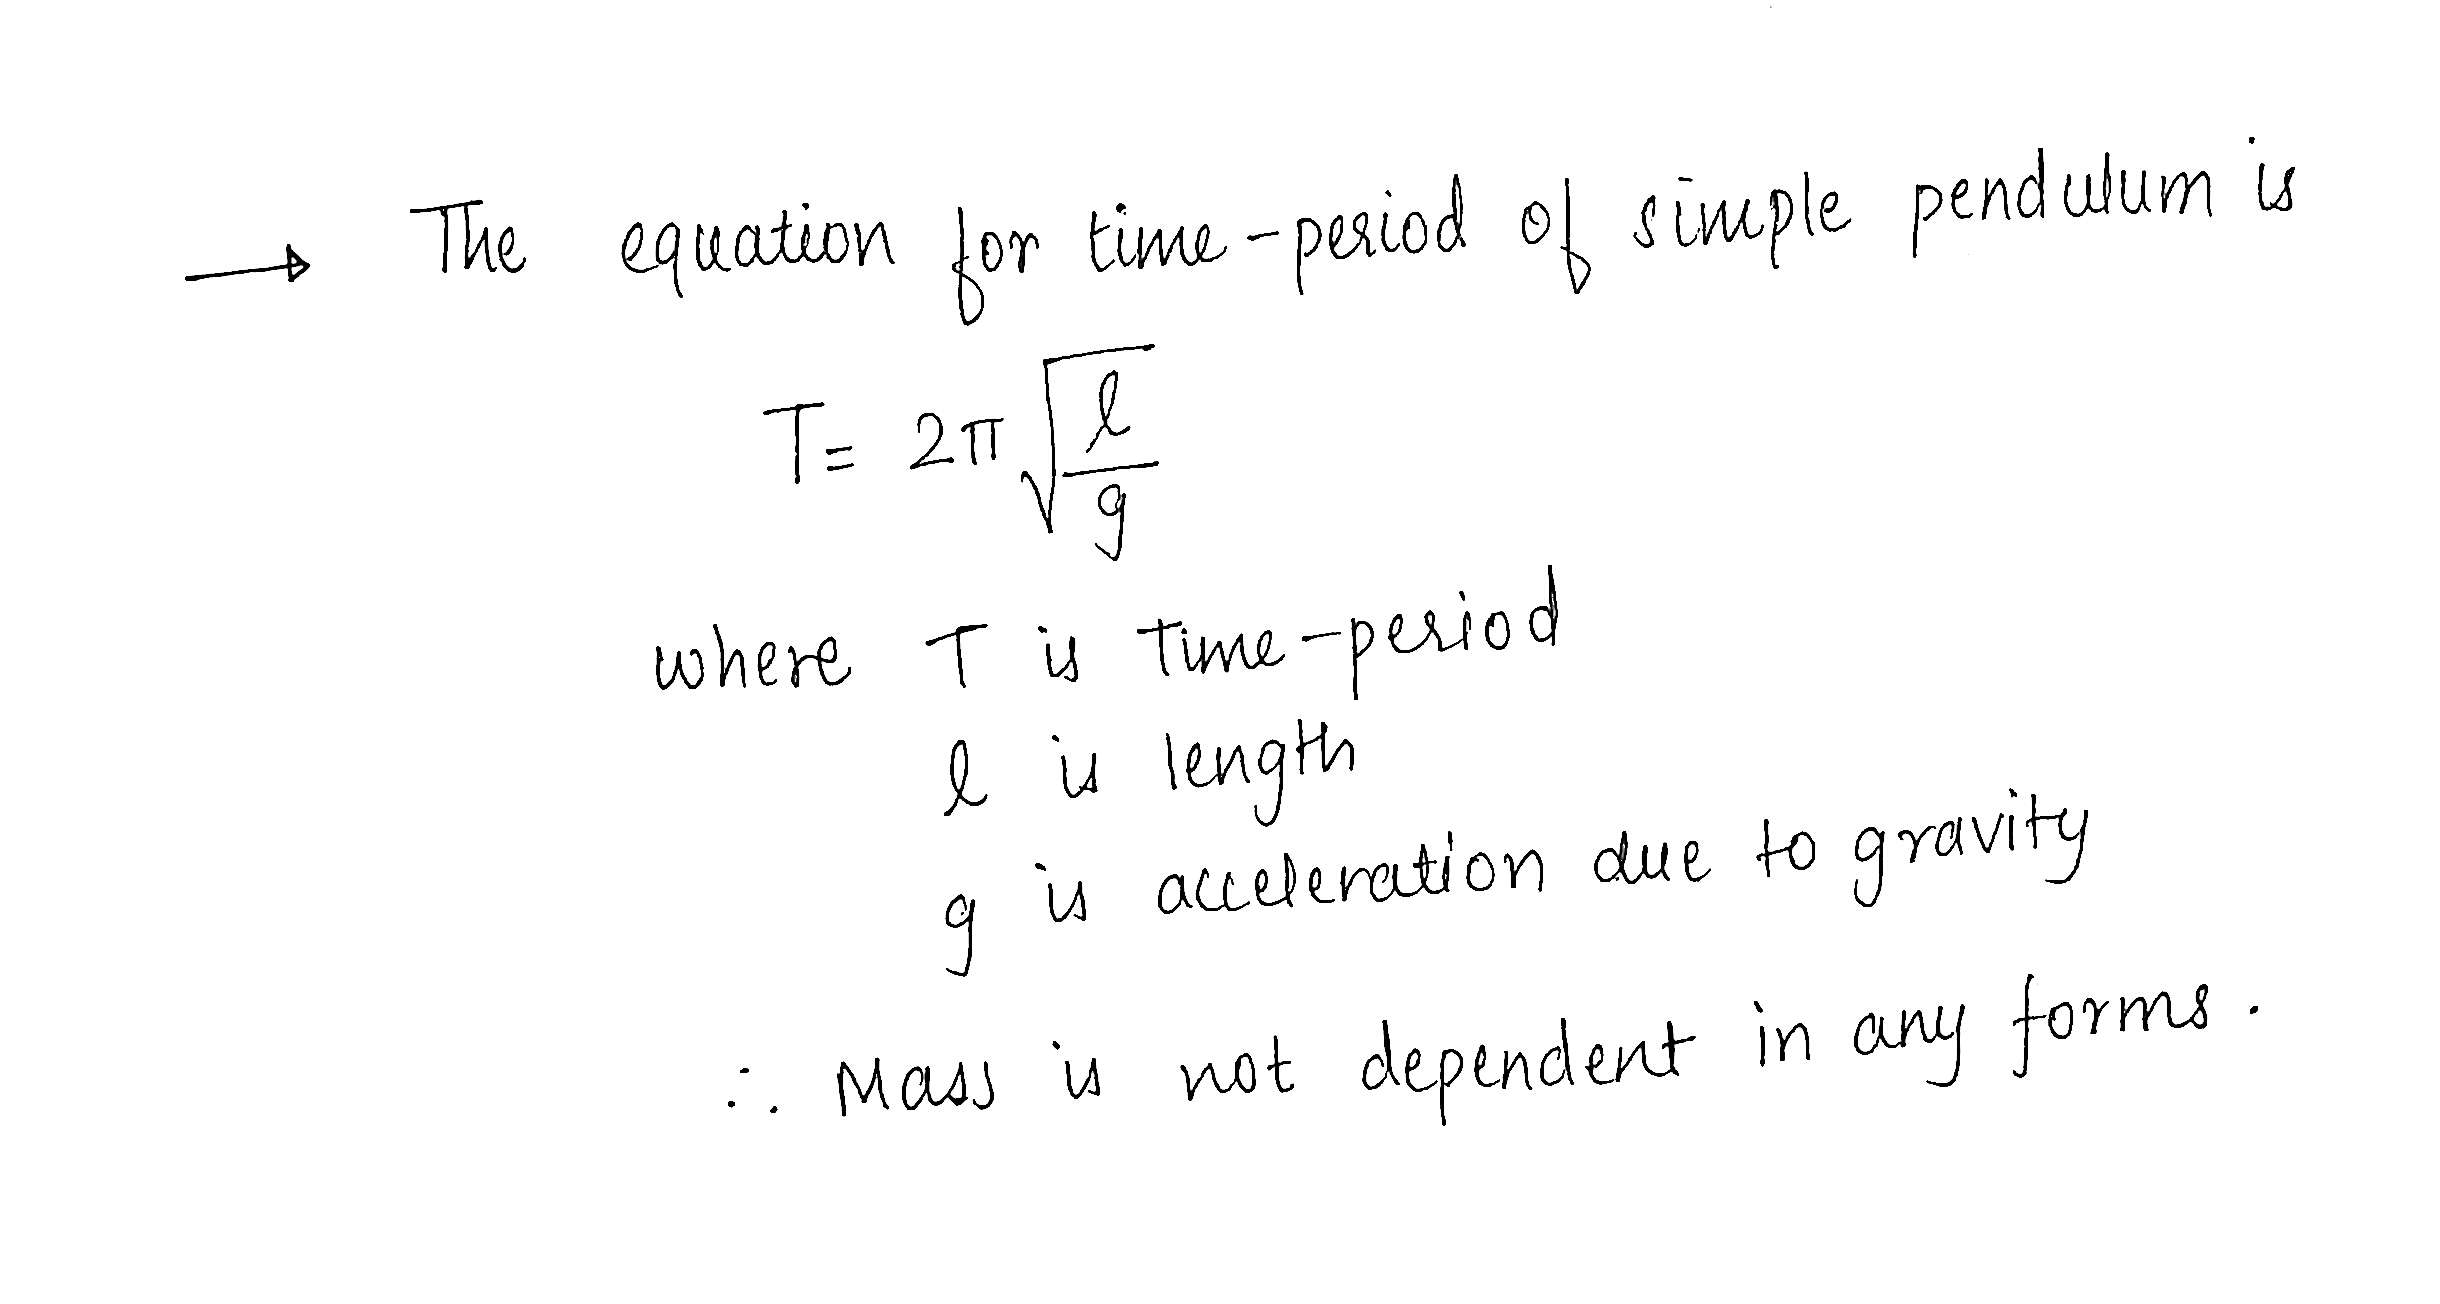 → The equation for time-period of simple pendulum is
T= 2π √(l/g)
where T is Time-period
l is length
g is acceleration due to gravity
∴ Mass is not dependent in any forms.